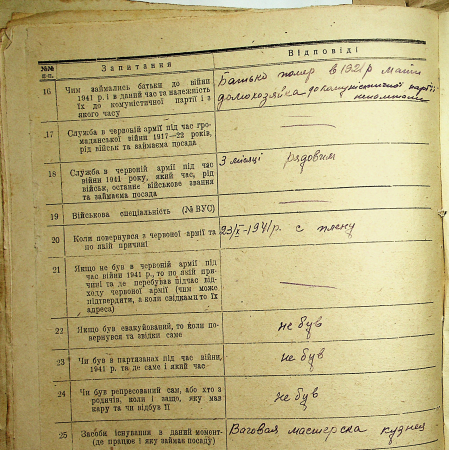 №№ п.п. Запитання Відповіді
16 Чим займались батьки до війни
1941 р. і в даний час та належність
їх до комуністичної партії і з
якого часу
Батько помер в 1921р мати
домохозяйка до комуністичної партії
17 Служба в червоній армії під час гро-
мадянської війни 1917—22 років,
рід військ та займаєма посада
18 Служба в червоній армії під час
війни 1941 року, який час, рід
військ, останнє військове звання
та займаєма посада
3 місяці рядовим
19 Військова спеціальність (№ ВУС)
20 Коли повернувся з червоної армії та
по якій причині
23/X-1941р. с плену
21 Якщо не був в червоній армії під
час війни 1941 р., то по якій при-
чині та де перебував підчас від-
ходу червоної армії (чим може
підтвердити, а коли свідками то їх
адреса)
22 Якщо був евакуйований, то коли по-
вернувся та звідки саме
не був
23 Чи був в партизанах під час війни,
1941 р. та де саме і який час
не був
24 Чи був репресований сам, або хто з
родичів, коли і защо, яку мав
кару та чи відбув її
не був
25 Засоби існування в даний момент-
(де працює і яку займає посаду)
Вагова мастерска кузнец